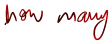 how many